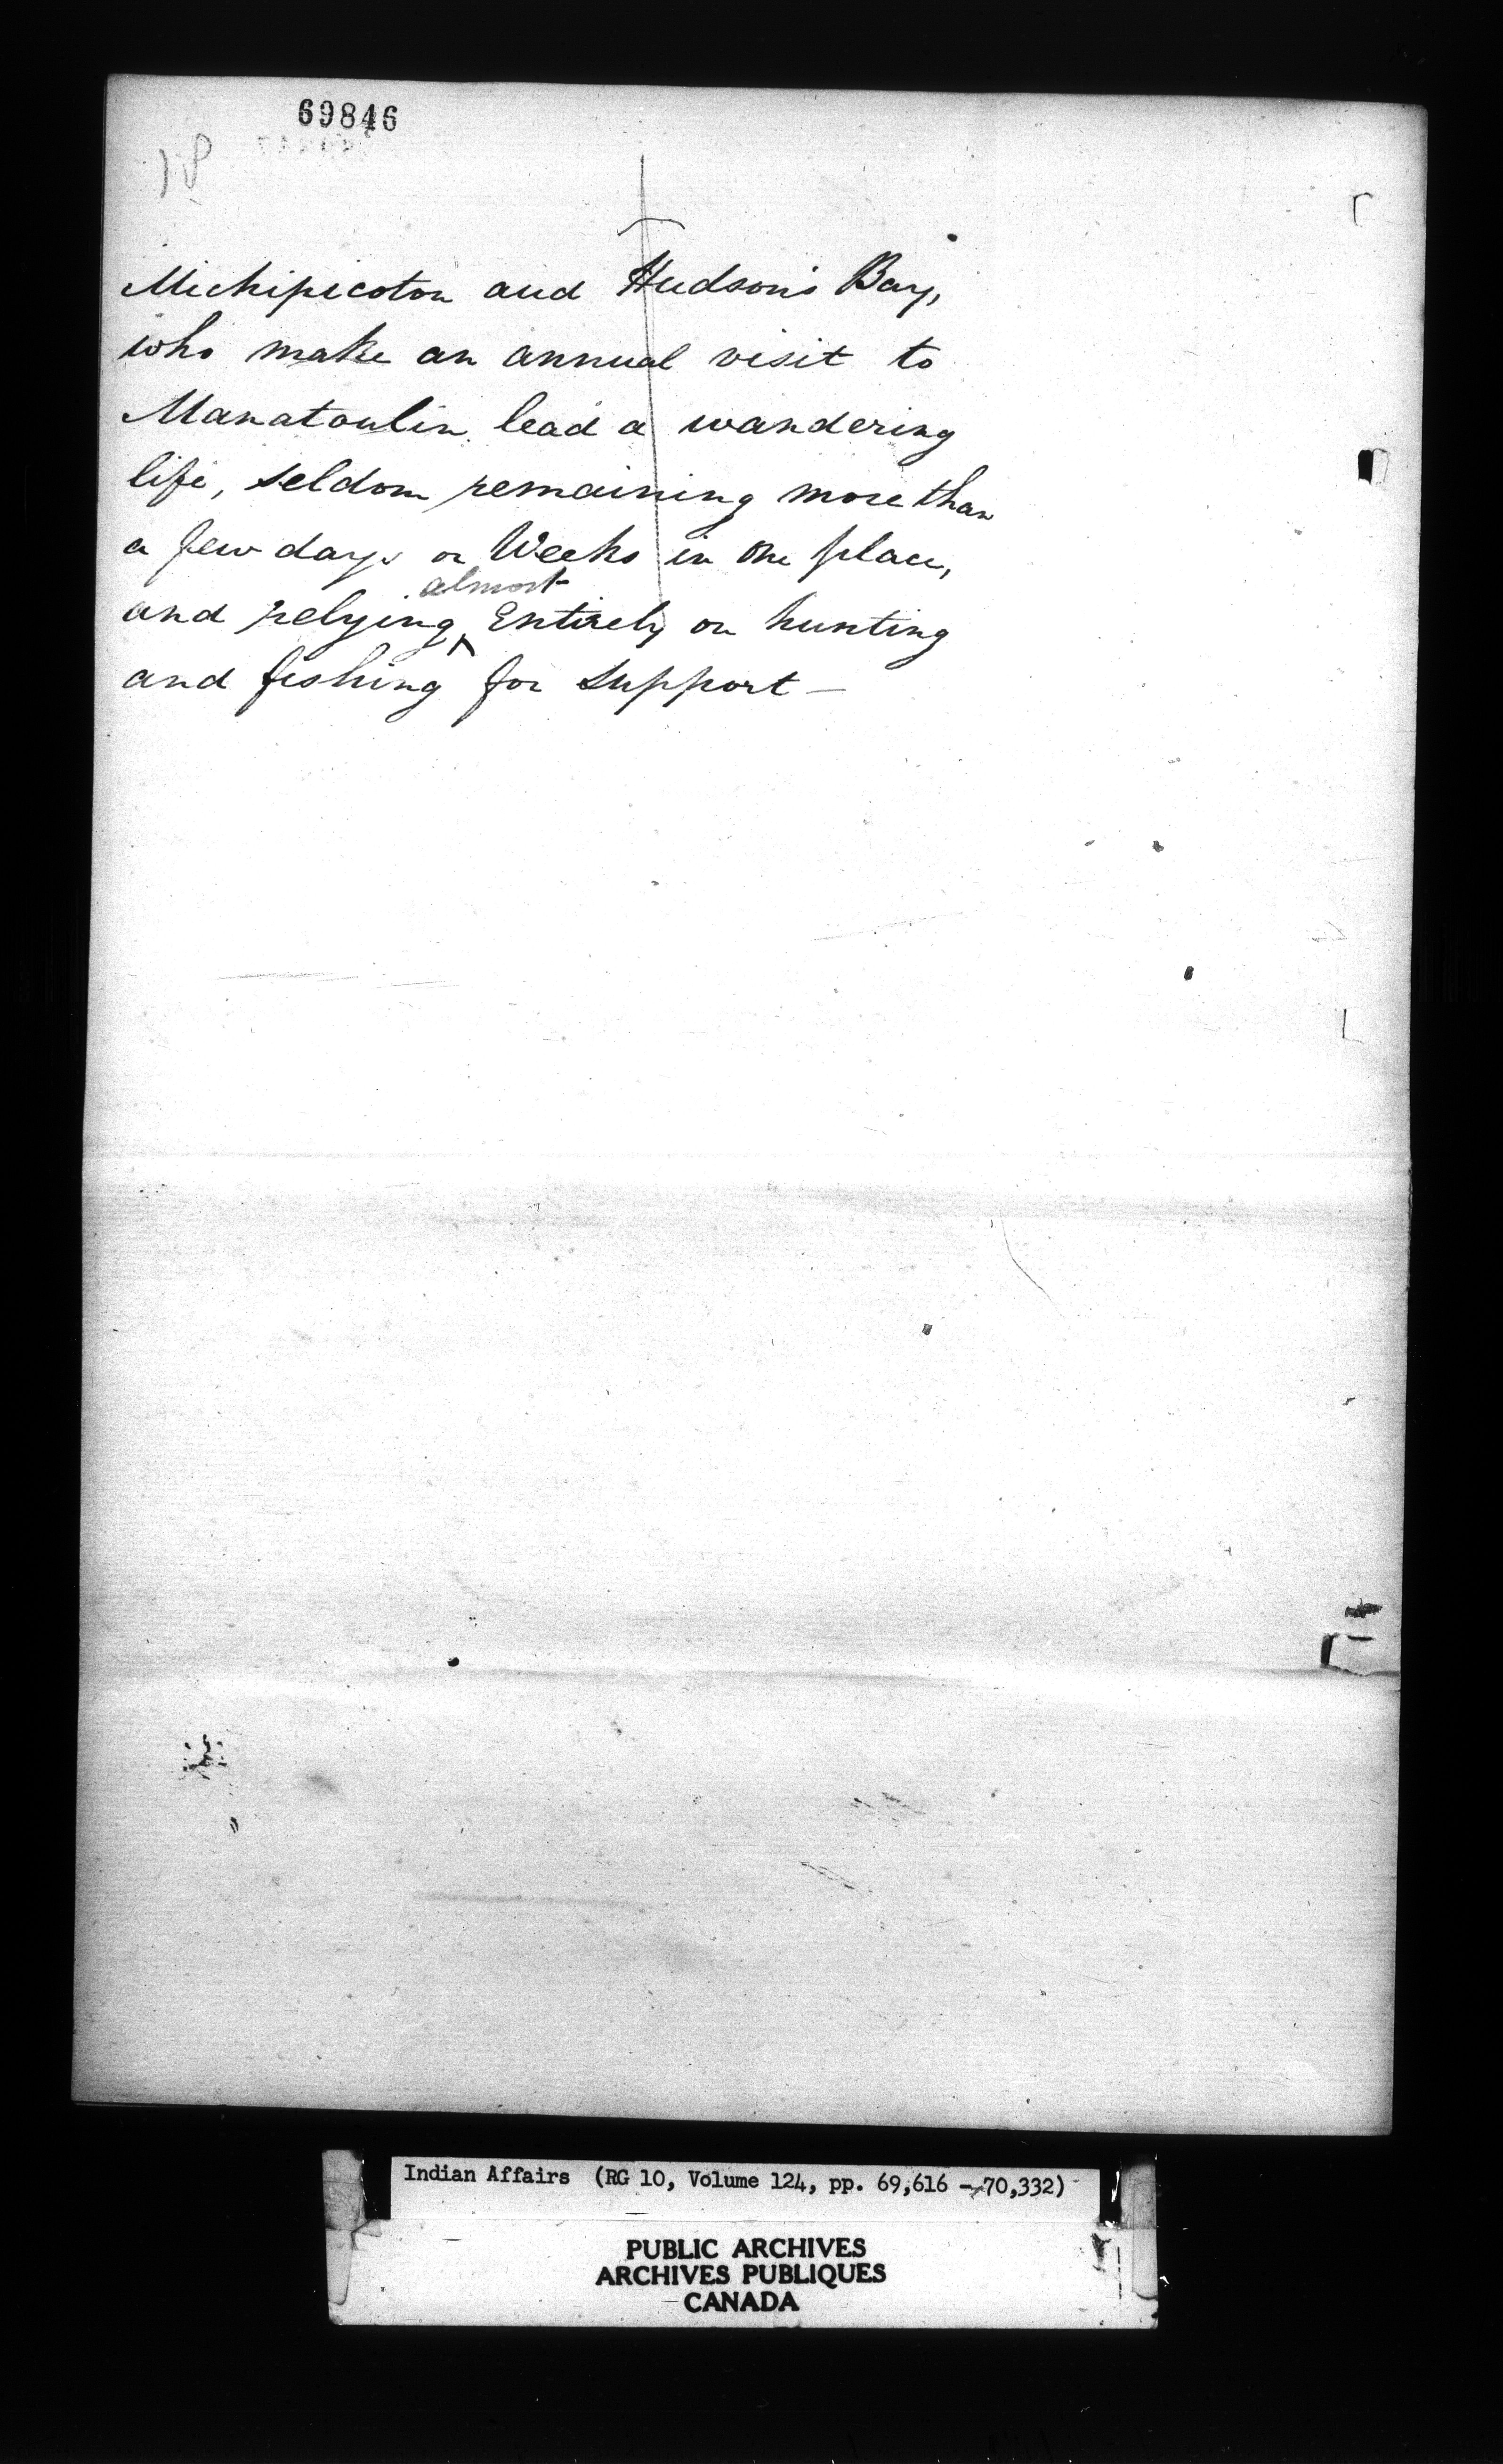 69846
18
Michipicoton and Hudson's Bay,
who make an annual visit to
Manatoulin lead a wandering
life, seldom remaining more than
a few days or Weeks in one place,
almost
and relying ^ Entirely on hunting
and fishing for support —
Indian Affairs (RG 10, Volume 124, pp. 69,616 - 70,332)
PUBLIC ARCHIVES
ARCHIVES PUBLIQUES
CANADA